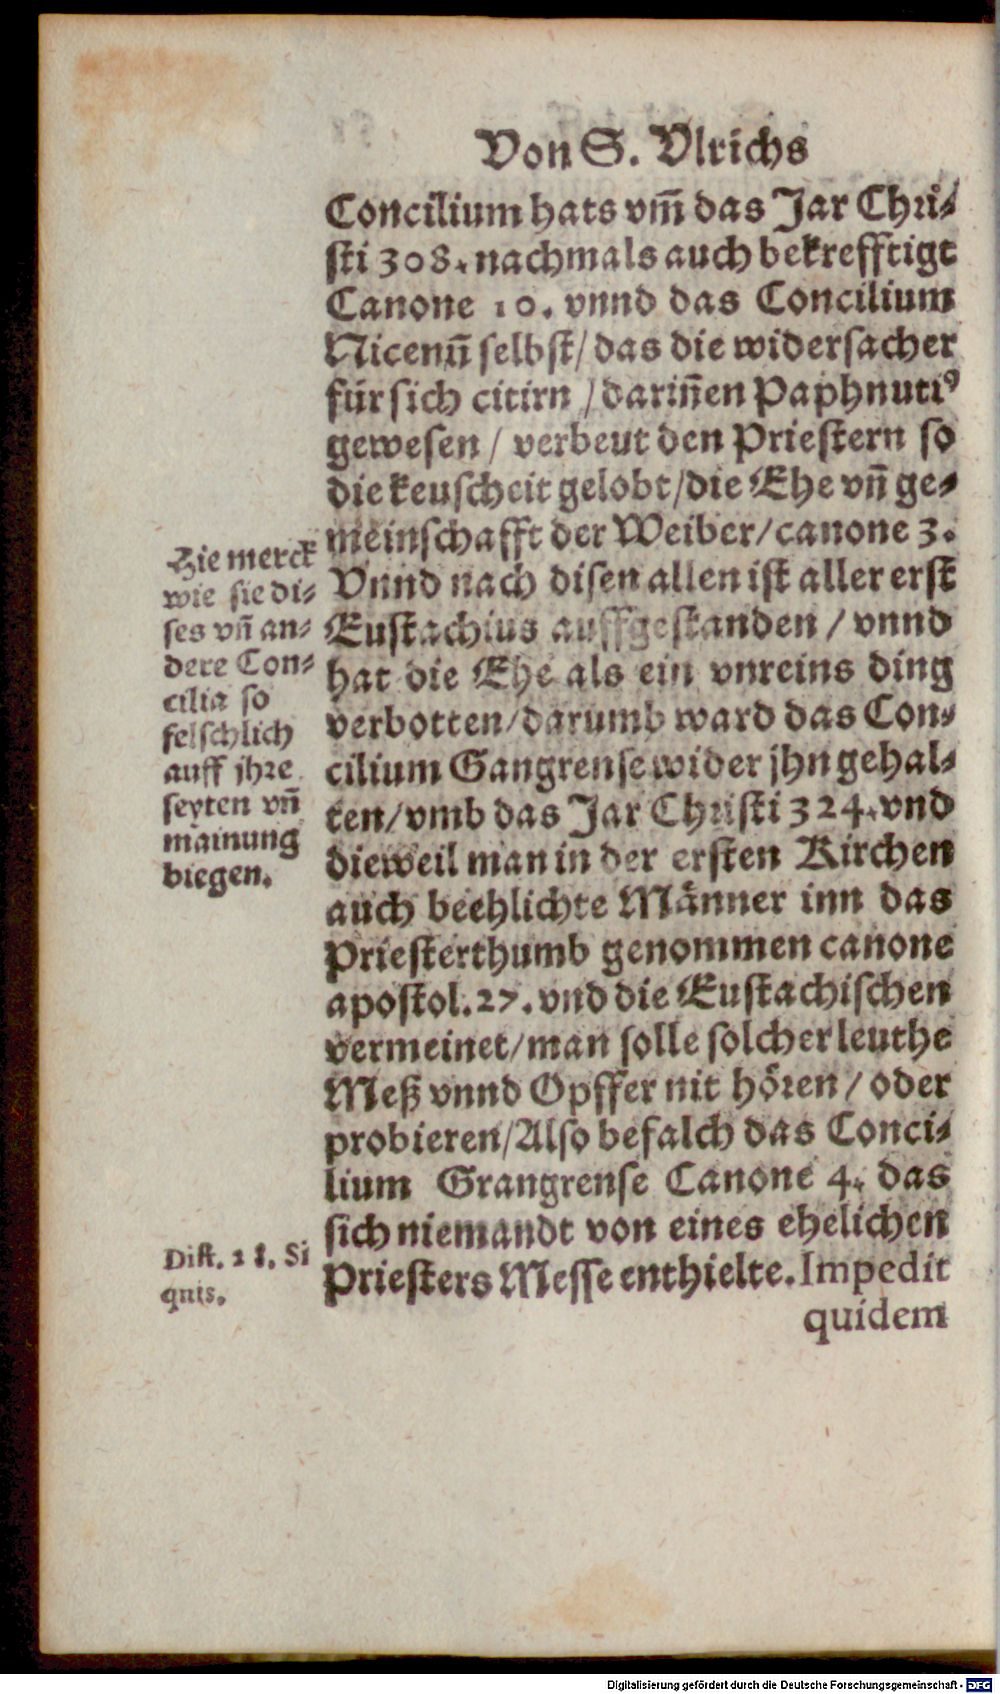 Von S. Vlrichs
Concilium hats vm̃ das Jar Chri⸗
sti 308. nachmals auch bekrefftigt
Canone 10. vnnd das Concilium
Nicenũ selbst/ das die widersacher
für sich citirn / dariñen Paphnutiꝰ
gewesen / verbeut den Priestern so
die keuscheit gelobt/die Ehe vñ ge⸗
meinschafft der Weiber/canone 3.
Vnnd nach disen allen ist aller erst
Eustachius auffgestanden / vnnd
hat die Ehe als ein vnreins ding
verbotten/darumb ward das Con⸗
cilium Gangrense wider jhn gehal⸗
ten/vmb das Jar Christi 324. vnd
dieweil man in der ersten Kirchen
auch beehlichte Männer inn das
Priesterthumb genommen canone
apostol. 27. vnd die Eustachischen
vermeinet/man solle solcher leuthe
Meß vnnd Opffer nit hören / oder
probieren/Also befalch das Conci⸗
lium Grangrense Canone 4. das
sich niemandt von eines ehelichen
Priesters Messe enthielte. Impedit
quidem
Hie merck
wie sie di⸗
ses vñ an⸗
dere Con⸗
cilia so
felschlich
auff jhre
seyten vñ
mainung
biegen.
Dist. 28. Si
quis.
Digitalisierung gefördert durch die Deutsche Forschungsgemeinschaft - DFG